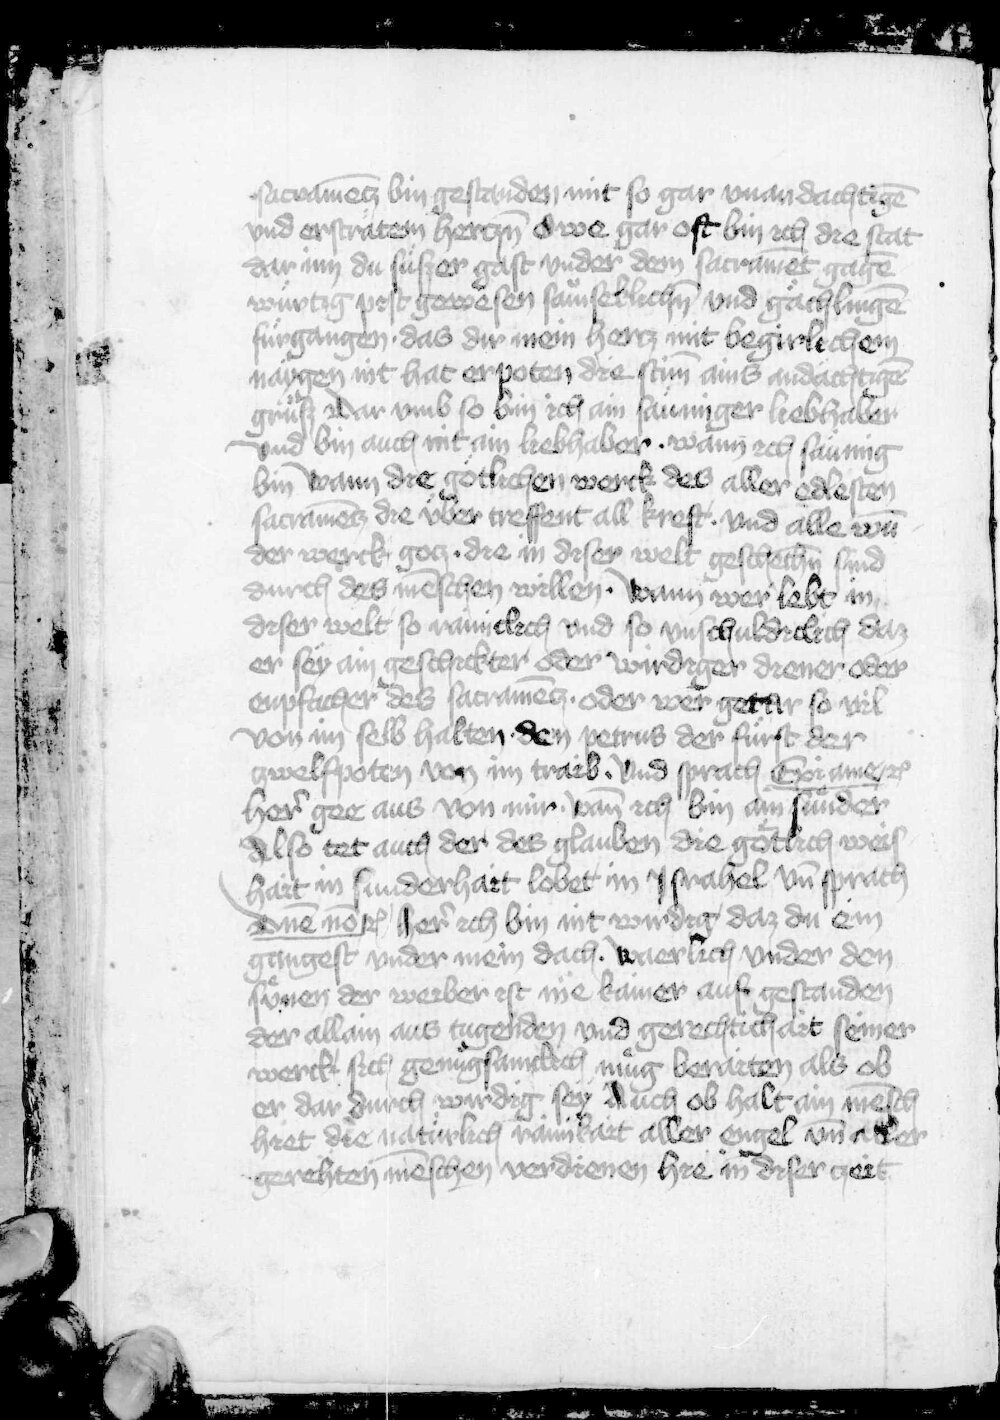 sacramētz bin gestanden mit so gar vnandachtigē
vnd erströtem hertzn̄ Owe gar oft bin ich die stat
dar inn du süszer gast vnder dem sacramēt gagē
würtig pist gewesen säumseklichn̄ vnd gächlingē
fürgangen · das dir mein hertz mit begirlichem
naÿgen nit hat erpoten die stim̄ ains andachtigē
grüsz Dar vmb so bin ich ain säuniger liebhaber
Vnd bin auch nit ain liebhaber · wann ich säunig
bin Wann die götlichen werck des aller edlesten
sacramētz die über treffent all kreft · Vnd alle wū
der werck gotz · die in diser welt geschechn̄ sind
durch des mēschen willen · Wann wer lebt in
diser welt so rainiclich vnd so vnschuldiclich daz
er seÿ ain geschickter oder wirdiger diener oder
enpfacher des sacramētz · oder wer getar so vil
von im selb halten · den petrus der fürst der
zwelfpoten von im traib · Vnd sprach
her' gee aus von mir · wan̄ ich bin ain sünder
Also tet auch der des glauben die götlich weis
hait in sunderhait lobet in Israhel vn̄ sprach
her' ich bin nit wirdig daz du ein
gangest vnder mein dach · Waerlich vnder den
sünen der weiber ist nie kainer auf gestanden
der allain aus tugenden vnd gerechtichait seiner
werck sich genugsamclich müg beraiten als ob
er dar durch wirdig seÿ Auch ob halt ain mēsch
hiet die natürlich rainikait aller engel vn̄ aller
gerehten mēschen verdienen hie in diser czeit